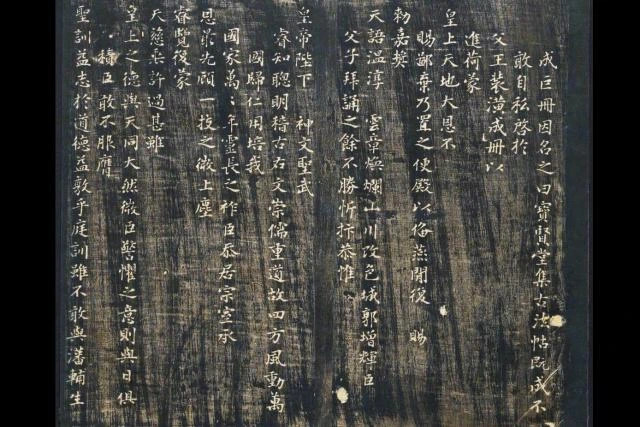 成巨冊因名之曰寶賢堂集古法帖既成不
敢自私啓於
父王裝潢成冊以
進荷蒙
皇上天地大恩不
賜鄙棄乃置之便殿以俻燕閒復賜
勑嘉奬
天語溫淳雲章煥爛山川改色城郭增輝臣
父子拜誦之餘不勝忻抃恭惟
皇帝陛下神文聖武
睿知聰明稽古右文崇儒重道故四方風動萬
國歸仁用培我
國家萬〻年靈長之祚臣忝居宗室承
恩最先顧一技之微上塵
睿覽復蒙
天慈柔許過甚雖
皇上之德與天同大然微臣警懼之意則與日俱
積臣敢不服膺
聖訓益志於道德益敦乎庭訓雖不敢與藩輔生